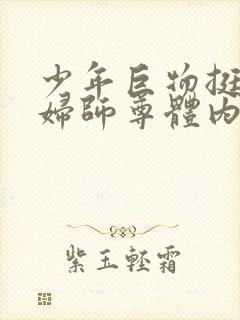 少年巨物挺
婦師尊體内
紫玉輕霜